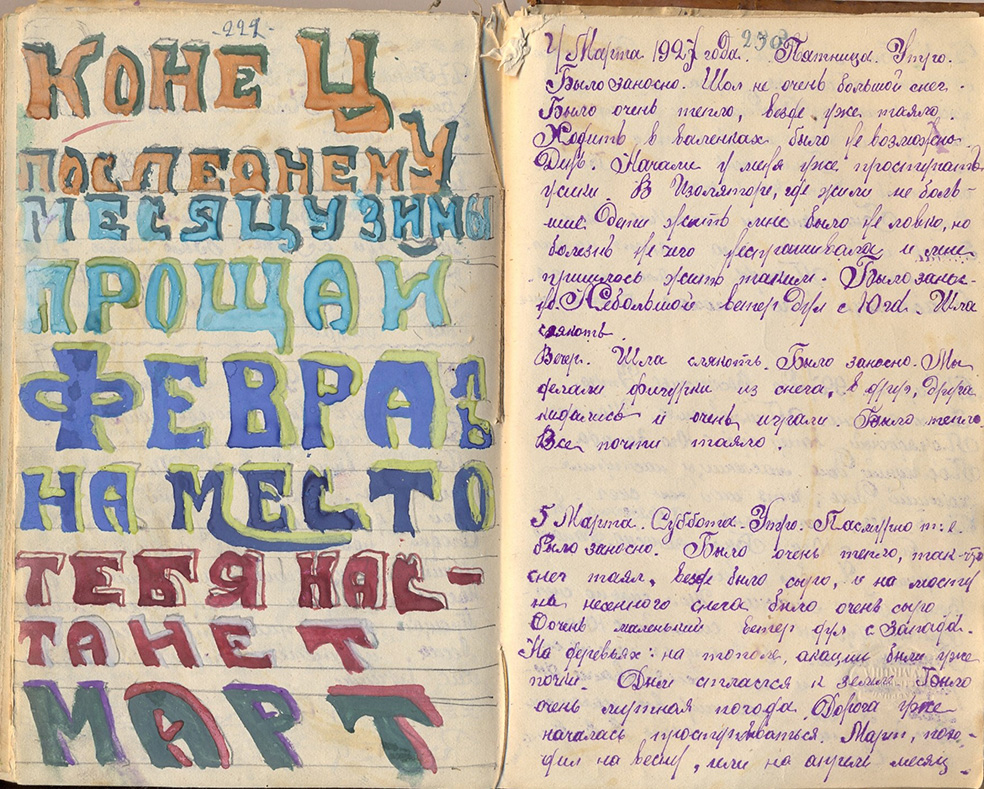 -229-
КОНЕЦ
ПОСЛЕДНЕМУ
МЕСЯЦУ ЗИМЫ
ПРОЩАЙ
ФЕВРАЛЬ
НА МЕСТО
ТЕБЯ НАС-
ТАНЕТ
МАРТ
230
4 Марта 1927 года. Пятница. Утро.
Было заносно. Шол не очень большой снег.
Было очень тепло, везде уже таяло.
Ходить в валенках было не возможно
День. Начали у меня уже проступать
усики. В Изоляторе, где жили не боль-
шие дети жить мне было не ловко, но
болезнь не чего не спрашивала и мне
пришлось жить таким. Было занос-
но. Небольшой ветер дул с Юга. Шла
слякоть.
Вечер. Шла слякоть. Было заносно. Мы
делали фигурки из снега, в друг, друга
кидались и очень играли. Было тепло.
Все почти таяло.
5 Марта. Суббота. Утро. Пасмурно т. е.
было заносно. Было очень тепло, так-что
снег таял, везде было сыро, и на мосту
на несенного снега было очень сыро
Очень маленький ветер дул с Запада.
На деревьях: на тополе, акации были уже
почки. Дым стлался к земле. Было
очень мутная погода. Дорога уже
началась простуживаться. Март, похо-
дил на весну, или на апрель месяц.